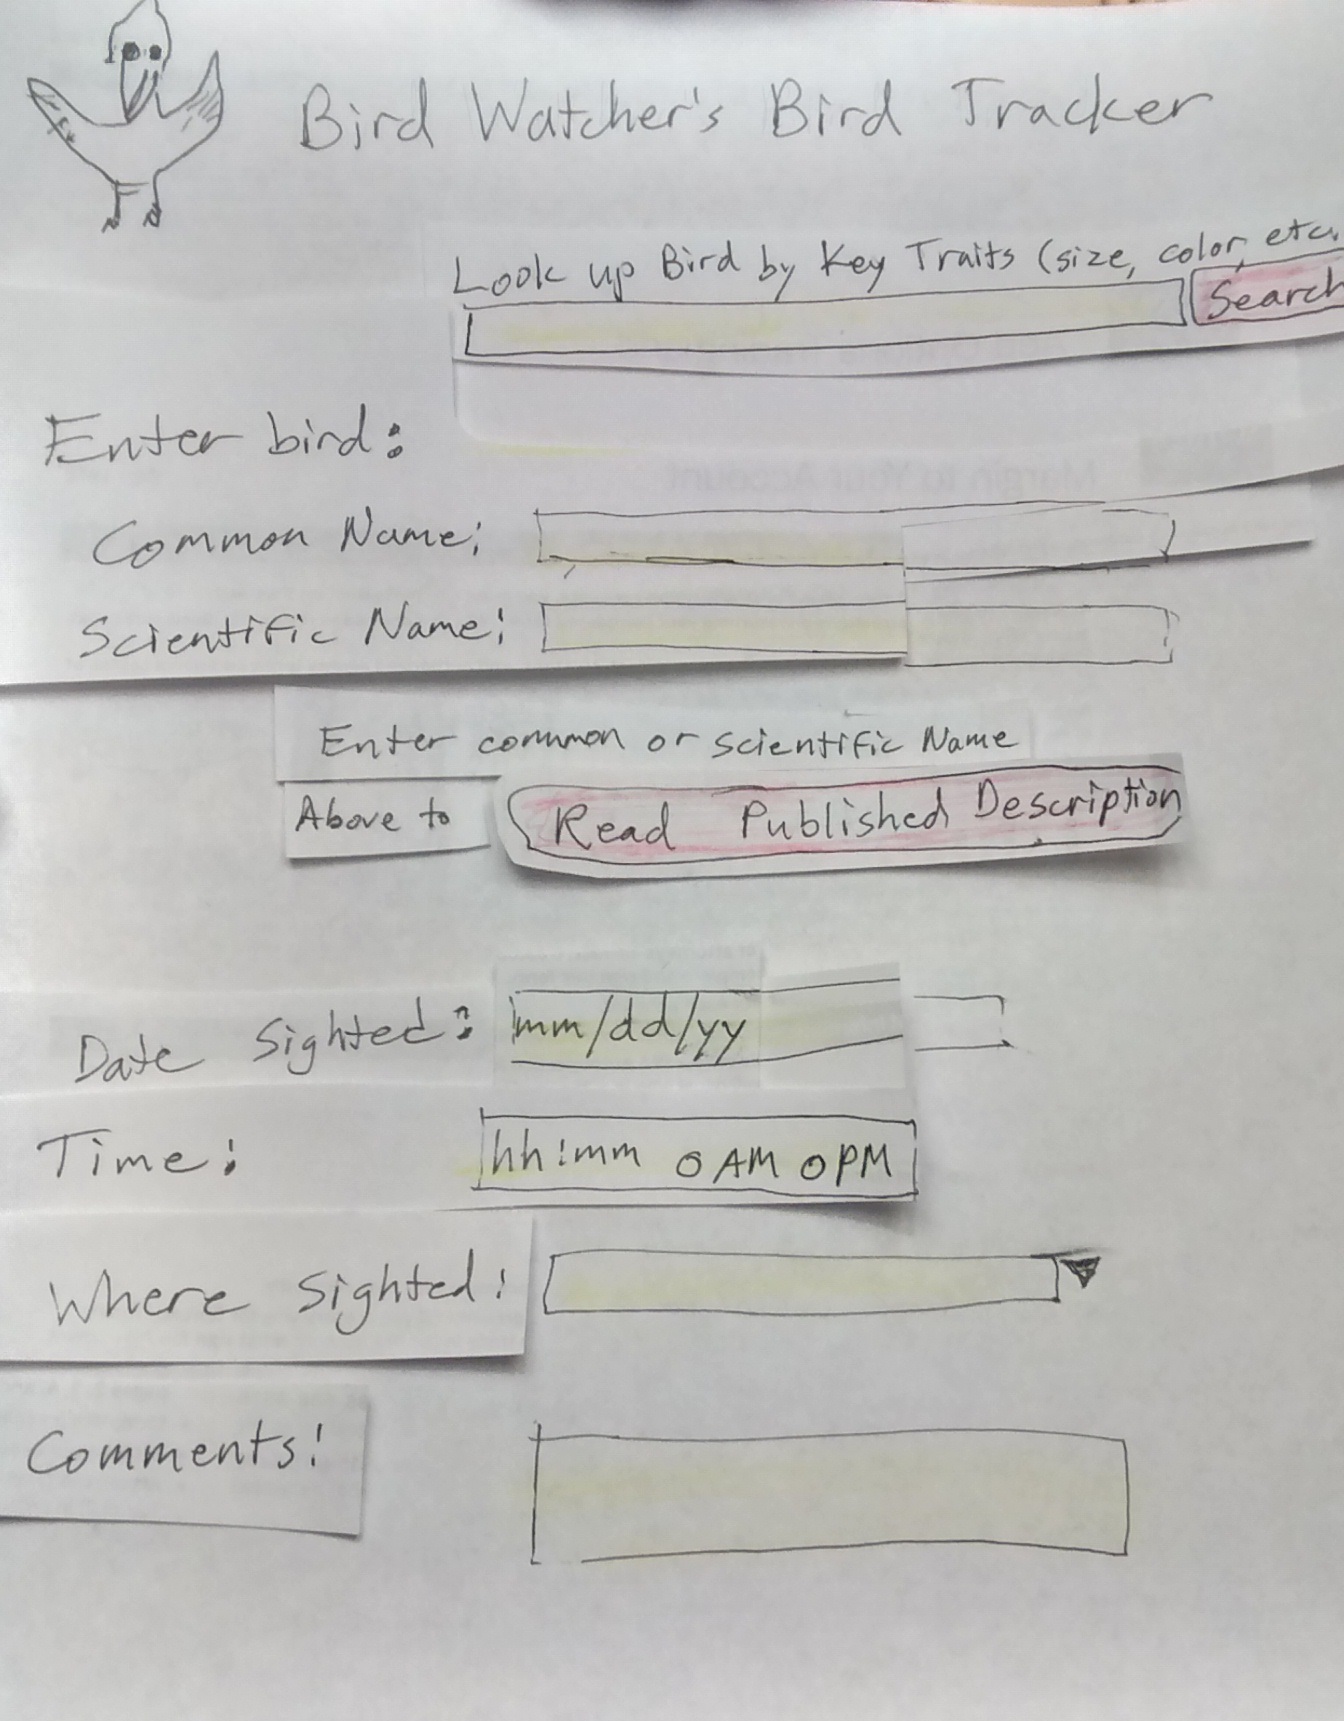 Bird Watcher's Bird Tracker
Look up Bird by Key Traits (size, color, etc.
Search
Enter bird:
Common Name:
Scientific Name:
Enter common or scientific Name
Above to Read Published Description
Date Sighted: mm/dd/yy
Time: hh:mm O AM O PM
Where Sighted:
Comments:
Margin to Your Account